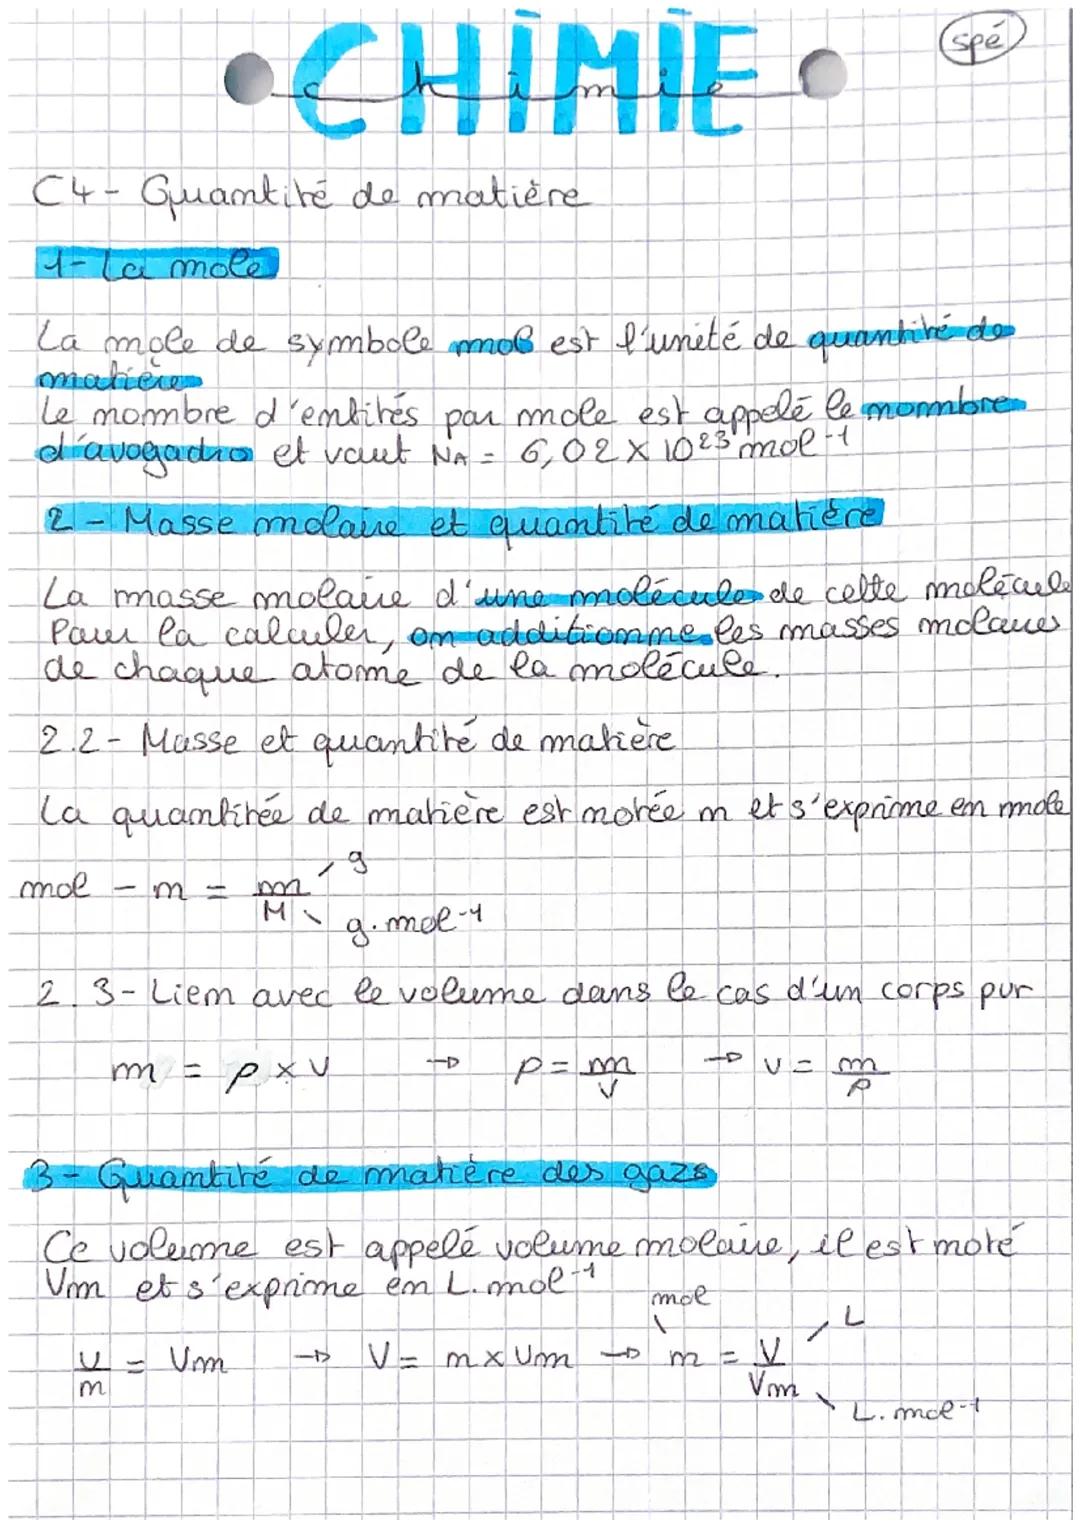 CHIMIE
chimie
spé
C4 - Quantité de matière
1- La mole
La mole de symbole mol est l'unité de quantité de
matière
Le nombre d'entités par mole est appelé le nombre
d'avogadro et vaut NA = 6,02 X 10²³ mol⁻¹
2 - Masse molaire et quantité de matière
La masse molaire d'une molécule de cette molécule
Pour la calculer, on additionne les masses molaires
de chaque atome de la molécule.
2.2 - Masse et quantité de matière
La quantitée de matière est notée n et s'exprime en mole
mol - n = m/M g g.mol⁻¹
2.3 - Lien avec le volume dans le cas d'un corps pur
m = ρ x V → ρ = m/V → V = m/ρ
3 - Quantité de matière des gazs
Ce volume est appelé volume molaire, il est noté
Vm et s'exprime en L.mol⁻¹
V/n = Vm → V = n x Vm → mol n = V/Vm L L.mol⁻¹